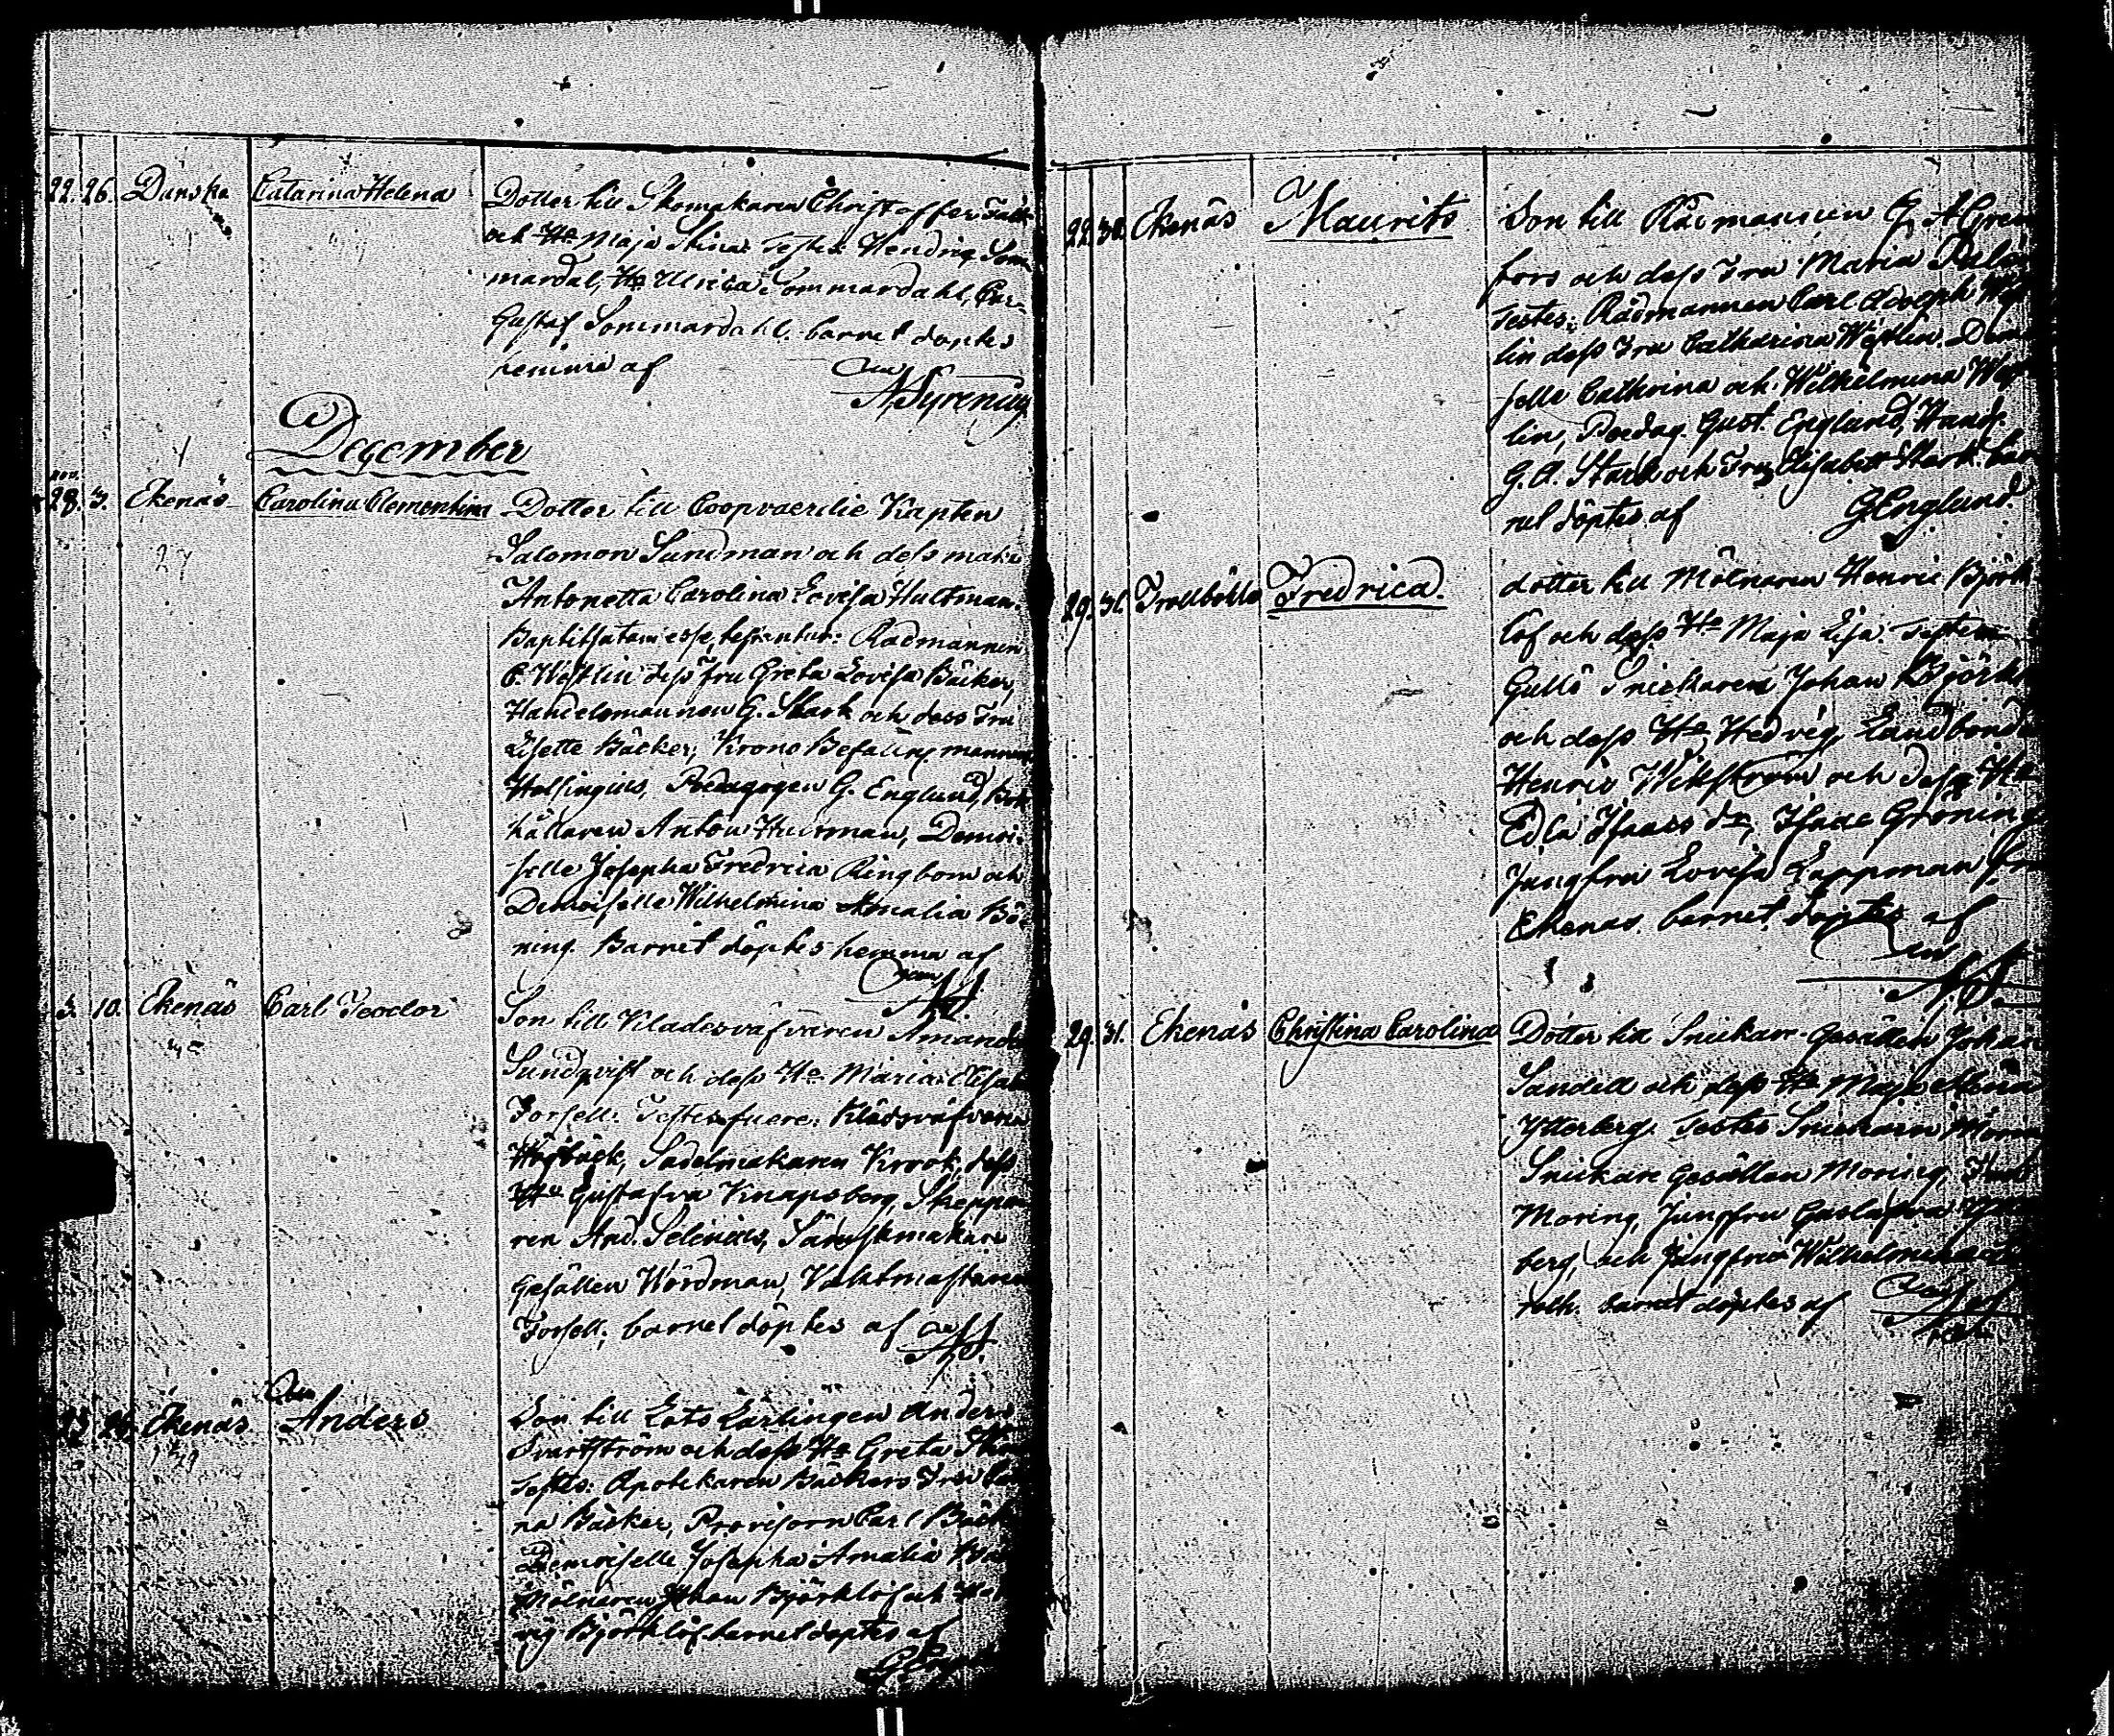 22. 26. Danska Catarina Helena Dotter till Skomakaren Christoffer
och Ho Maja Stina. Testes Hendric Som
mardal, Ho Ulrica Sommardahl, Car
Gustaf Sommardahl. barnet doptes
hemma af
A Syrenius
December
nov.
28. 3. Ekenäs Carolina Clementina Dotter till Coopvaerdie Kapten
Salomon Sundman och dess maka
Antonetta Carolina Lovisa Hultman.
testantur: Rådmannen
C. Westlin dess fru Greta Lovisa Bäcker,
Handelsmannen G. Stark och dess Fru
Lisette Bäcker, Krono Befallngs mannen
Helsingius, Pedagogen G. Englund, Bok
hållaren Anton Hultman, Demoi-
selle Josepha Fredrica Ringbom och
Demoiselle Wilhelmina Amalia Bö-
ning. Barnet döptes hemma af
A.S.
3. 10. Ekenäs Carl Teodor Son till Klädesväfvaren Amandu
Sundqvist och dess Ho Maria Elisab
Forsell. Testes fuere: Klädsväfvaren
Högbäck, Sadelmakaren Krook, dess
Ho Gustafva Knapsberg, Skeppa
ren And. Selenius, Sämskmakare
Gesällen Wördman, Vaktmästaren
Forsell; barnet döptes af A.S.
23 26. Ekenäs Anders Son till Lots Lärlingen Anders
Svartström och dess Ho Greta
Testes: Apotekaren Bäckers Fru
na Bäcker, Provisorn Carl Bäck
Demoiselle Josepha Amalia
Mölnaren Johan Björklöf och Hed
vig Björklöf. barnet doptes af
22. 30. Ekenäs Maurits Son till Rådmannen G. A. Gren
fors och dess Fru Maria
Testes: Rådmannen Carl Adolph Wes
lin dess Fru Catharina Westlin. Demoi
selle Cathrina och Wilhelmina Wes
lin, Poedag. Gust. Englund, Handl.
G. A. Stark och Fru Elisabet Stark. bar
net döptes af G Englund.
29. 31. Trollböle Fredrica. dotter till Mölnaren Henric Björk
löf och dess Ho Maja Lisa. Testes
Gullö Snickaren Johan Björkl
och dess Ho Hedvig, Landbonden
Henric Wikström och dess Ho
Edla Isaacs dr, Isaac Gröning
Jungfru Lovisa Lappman fr
Ekenäs. barnet doptes af
A.S.
29. 31. Ekenäs Christina Carolina Dotter till Snickare Gesällen Johan
Sandell och dess Ho Maja Stina
Ytterberg. Testes Snickaren
Snickare Gesällen Moring,
Moring, Jungfru Gustafva
berg, och Jungfru Wilhelmina
barnet döptes af